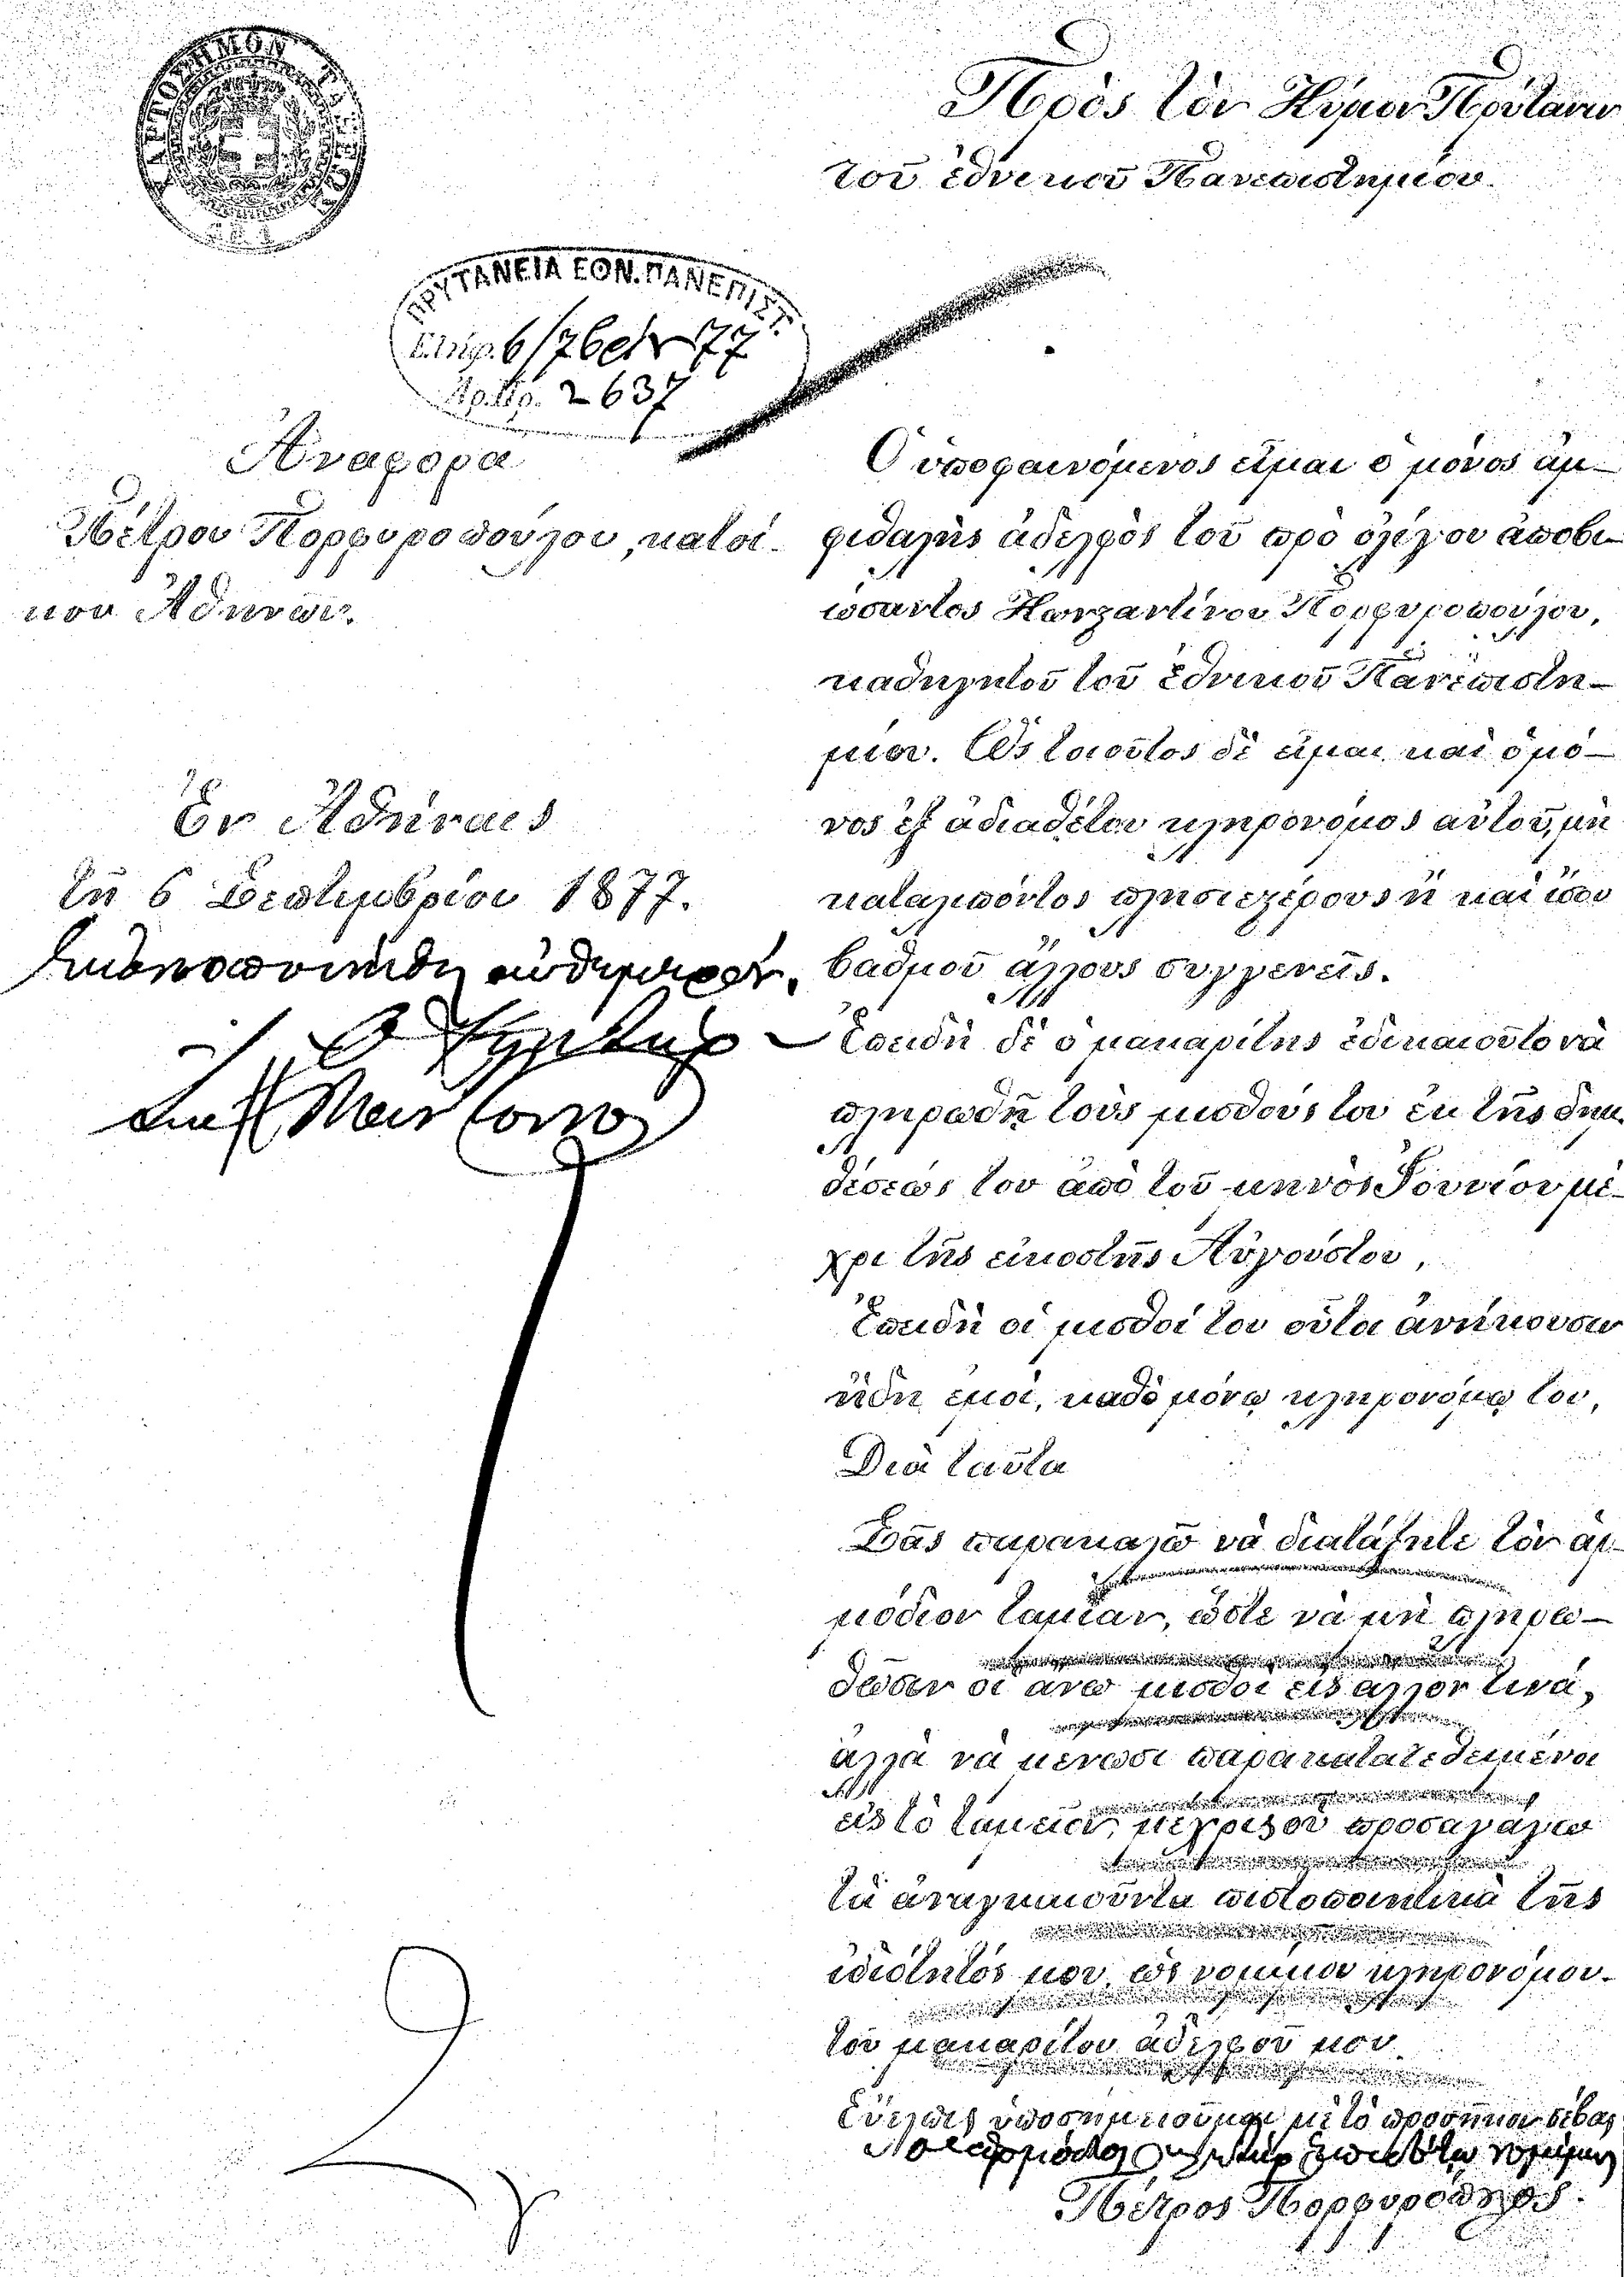 ΧΑΡΤΟΣΗΜΟΝ
Πρὸς τὸν Κύριον Πρύτανιν
τοῦ ἐθνικοῦ Πανεπιστημίου.
ΠΡΥΤΑΝΕΙΑ ΕΘΝ. ΠΑΝΕΠΙΣΤ.
Ἐλήφ. 6/7βρίου 77
Ἀρ. Πρ. 2637
Ἀναφορὰ
Πέτρου Πορφυροπούλου, κατοί-
κου Ἀθηνῶν.
Ἐν Ἀθήναις
τῇ 6 Σεπτεμβρίου 1877.
αὐθημερόν.
Ὁ
Ὁ ὑποφαινόμενος εἶμαι ὁ μόνος ἀμ-
φιθαλὴς ἀδελφὸς τοῦ πρὸ ὀλίγου ἀποβι-
ώσαντος Κωνσταντίνου Πορφυροπούλου,
καθηγητοῦ τοῦ ἐθνικοῦ Πανεπιστη-
μίου. Ὡς τοιοῦτος δὲ εἶμαι καὶ ὁ μό-
νος ἐξ ἀδιαθέτου κληρονόμος αὐτοῦ, μὴ
καταλιπόντος πλησιεστέρους ἢ καὶ ἴσου
βαθμοῦ ἄλλους συγγενεῖς.
Ἐπειδὴ δὲ ὁ μακαρίτης ἐδικαιοῦτο νὰ
πληρωθῇ τοὺς μισθούς του ἐκ τῆς
θέσεώς του ἀπὸ τοῦ μηνὸς Ἰουνίου μέ-
χρι τῆς εἰκοστῆς Αὐγούστου,
Ἐπειδὴ οἱ μισθοί του οὗτοι ἀνήκουσιν
ἤδη ἐμοί, καθὸ μόνῳ κληρονόμῳ του,
Διὰ ταῦτα
Σᾶς παρακαλῶ νὰ διατάξητε τὸν ἁρ-
μόδιον ταμίαν, ὥστε νὰ μὴ πληρω-
θῶσιν οἱ ἄνω μισθοὶ εἰς ἄλλον τινά,
ἀλλὰ νὰ μένωσι παρακατατεθειμένοι
εἰς τὸ ταμεῖον, μέχρις οὗ προσαγάγω
τὰ ἀναγκαιοῦντα πιστοποιητικὰ τῆς
ἰδιότητός μου, ὡς νομίμου κληρονόμου
τοῦ μακαρίτου ἀδελφοῦ μου.
Εὔελπις ὑποσημειοῦμαι μὲ τὸ προσῆκον σέβας
Πέτρος Πορφυρόπουλος.